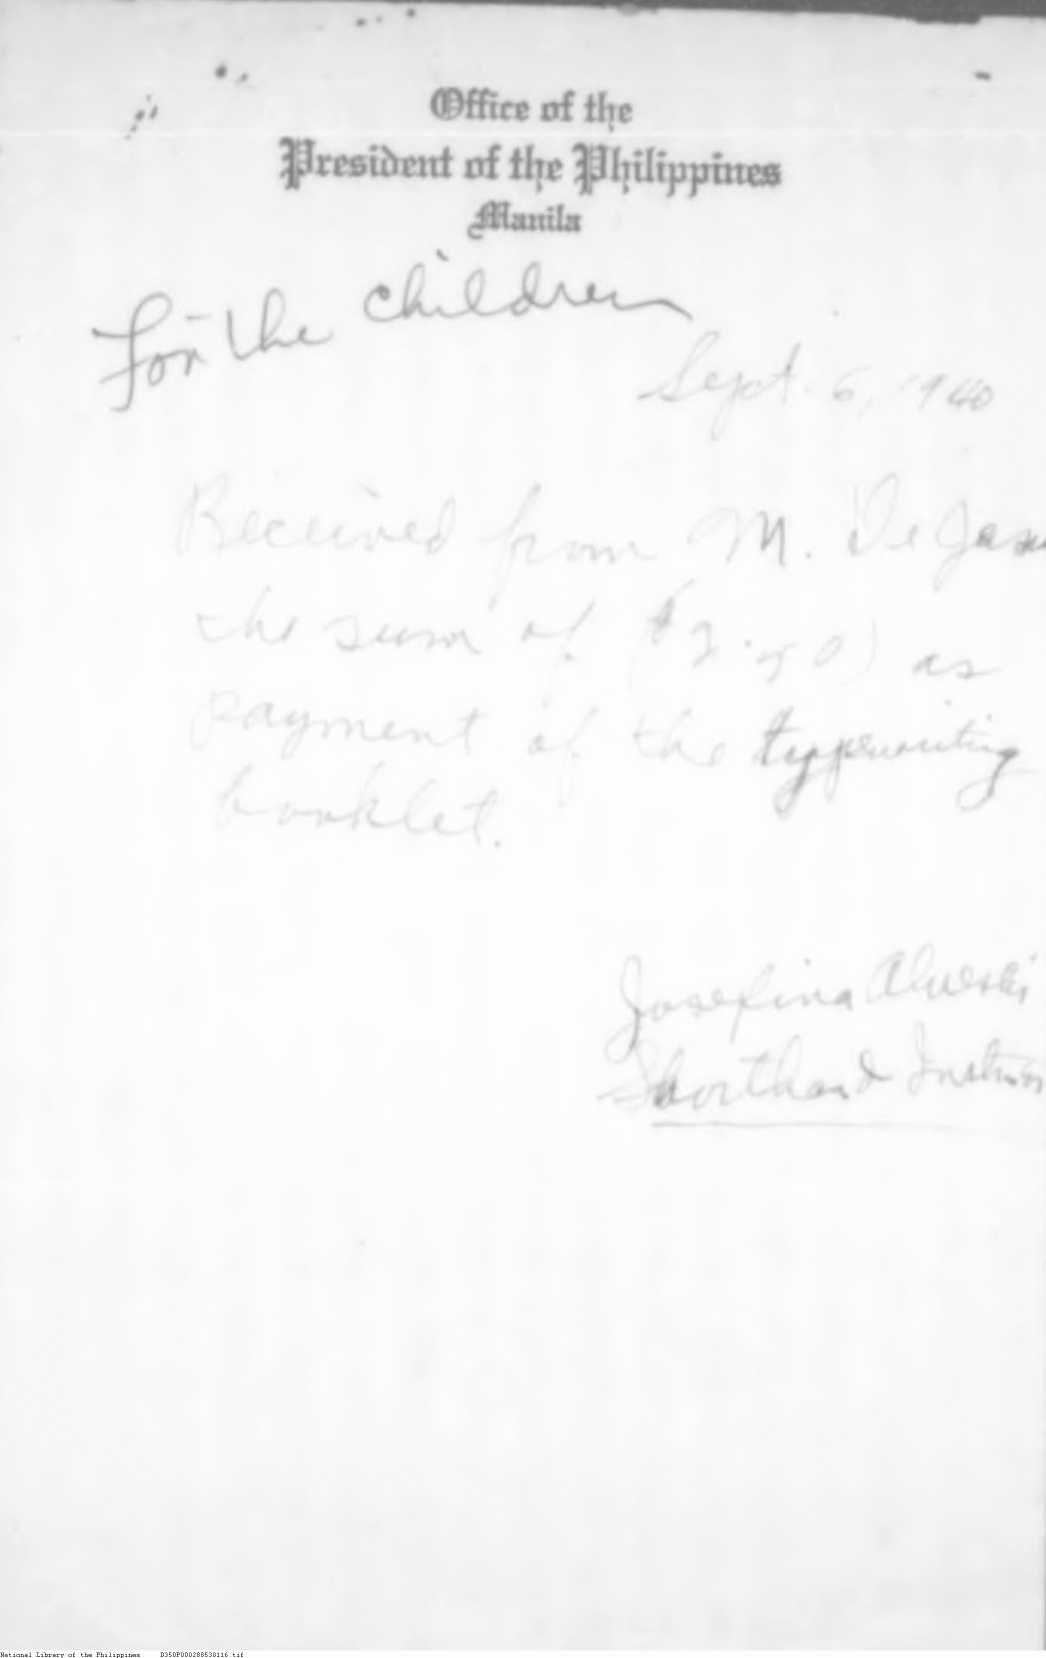 Office of the
President of the Philippines
Manila
For the children
Sept. 6, 1940
Received from M. De Jesu
the sum of (₱2.50) as
payment of the typewriting
booklet.
Josefina
Shorthand Instruc
National Library of the Philippines D350P000288530116.tif